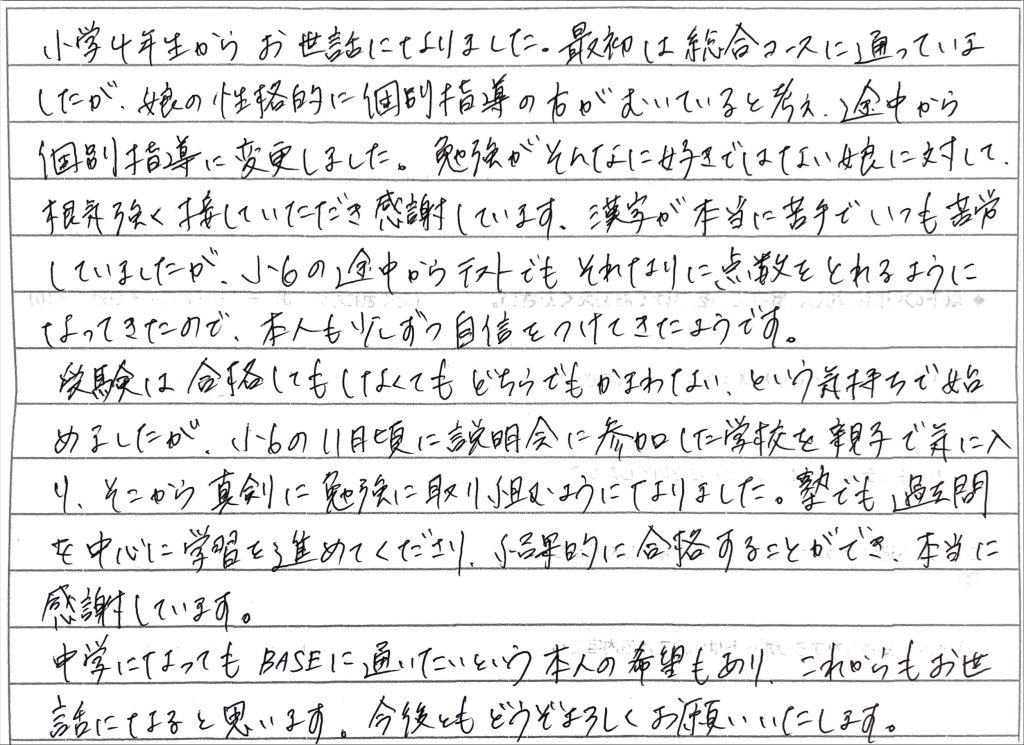 小学4年生からお世話になりました。最初は総合コースに通っていま
したが、娘の性格的に個別指導の方がむいていると考え、途中から
個別指導に変更しました。勉強がそんなに好きではない娘に対して、
根気強く接していただき感謝しています。漢字が本当に苦手でいつも苦労
していましたが、小6の途中からテストでもそれなりに点数をとれるように
なってきたので、本人も少しずつ自信をつけてきたようです。
受験は合格してもしなくてもどちらでもかまわない、という気持ちで始
めましたが、小6の11月頃に説明会に参加した学校を親子で気に入
り、そこから真剣に勉強に取り組むようになりました。塾でも過去問
を中心に学習を進めてくださり、結果的に合格することができ、本当に
感謝しています。
中学になってもBASEに通いたいという本人の希望もあり、これからもお世
話になると思います。今後ともどうぞよろしくお願いいたします。